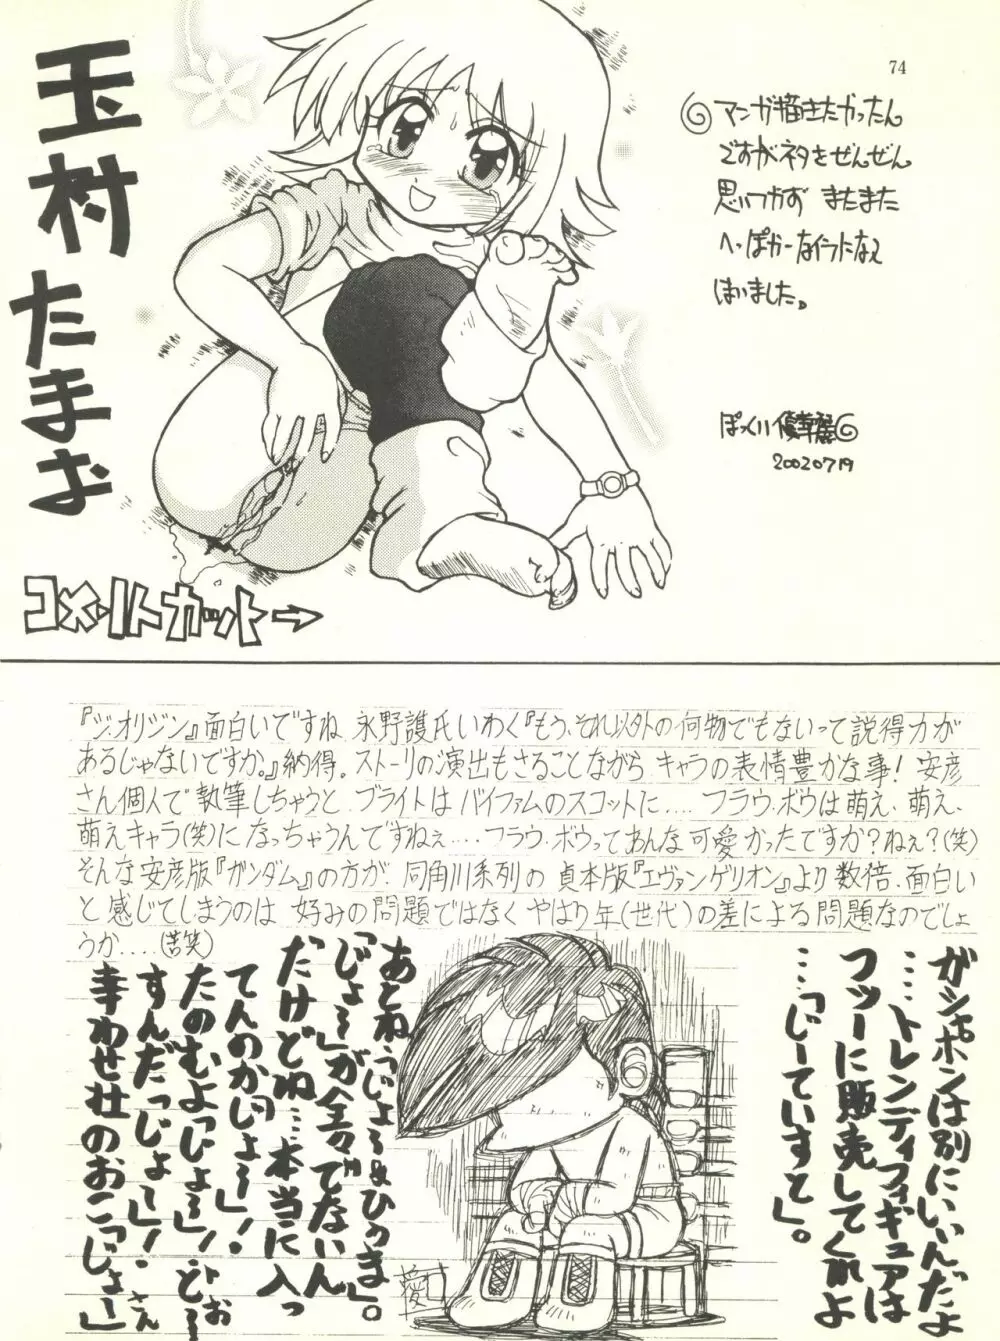 74
玉村たまお
マンガ描きたかったん
ですがネタをぜんぜん
思いつかず またまた
へっぽこーなイラストになって
しまいました。
20020719
コメントカット→
『ジ・オリジン』面白いですね 永野護氏いわく『もう、それ以外の何物でもないって説得力が
あるじゃないですか。』納得。ストーリの演出もさることながら キャラの表情豊かな事! 安彦
さん個人で執筆しちゃうと ブライトはバイファムのスコットに…… フラウ・ボウは萌え、萌え、
萌えキャラ(笑)になっちゃうんですねぇ…… フラウ・ボウってあんな可愛かったですか?ねぇ?(笑)
そんな安彦版『ガンダム』の方が 同角川系列の 貞本版『エヴァンゲリオン』より数倍、面白い
と感じてしまうのは 好みの問題ではなく やはり年(世代)の差による問題なのでしょ
うか……(苦笑)
ガシャポンは別にいいんだよ
……トレンディフィギュアは
フツーに販売してくれよ
……「じーていすと」。
あとね、「じょ〜&ひっま」。
「じょ〜」が全々でないん
だけどね……本当に入っ
てんのか「じょ〜」!
たのむよっ「じょ〜」! と〜
すんだっ「じょ〜」!
幸わせ壮のおこ「じょ〜」